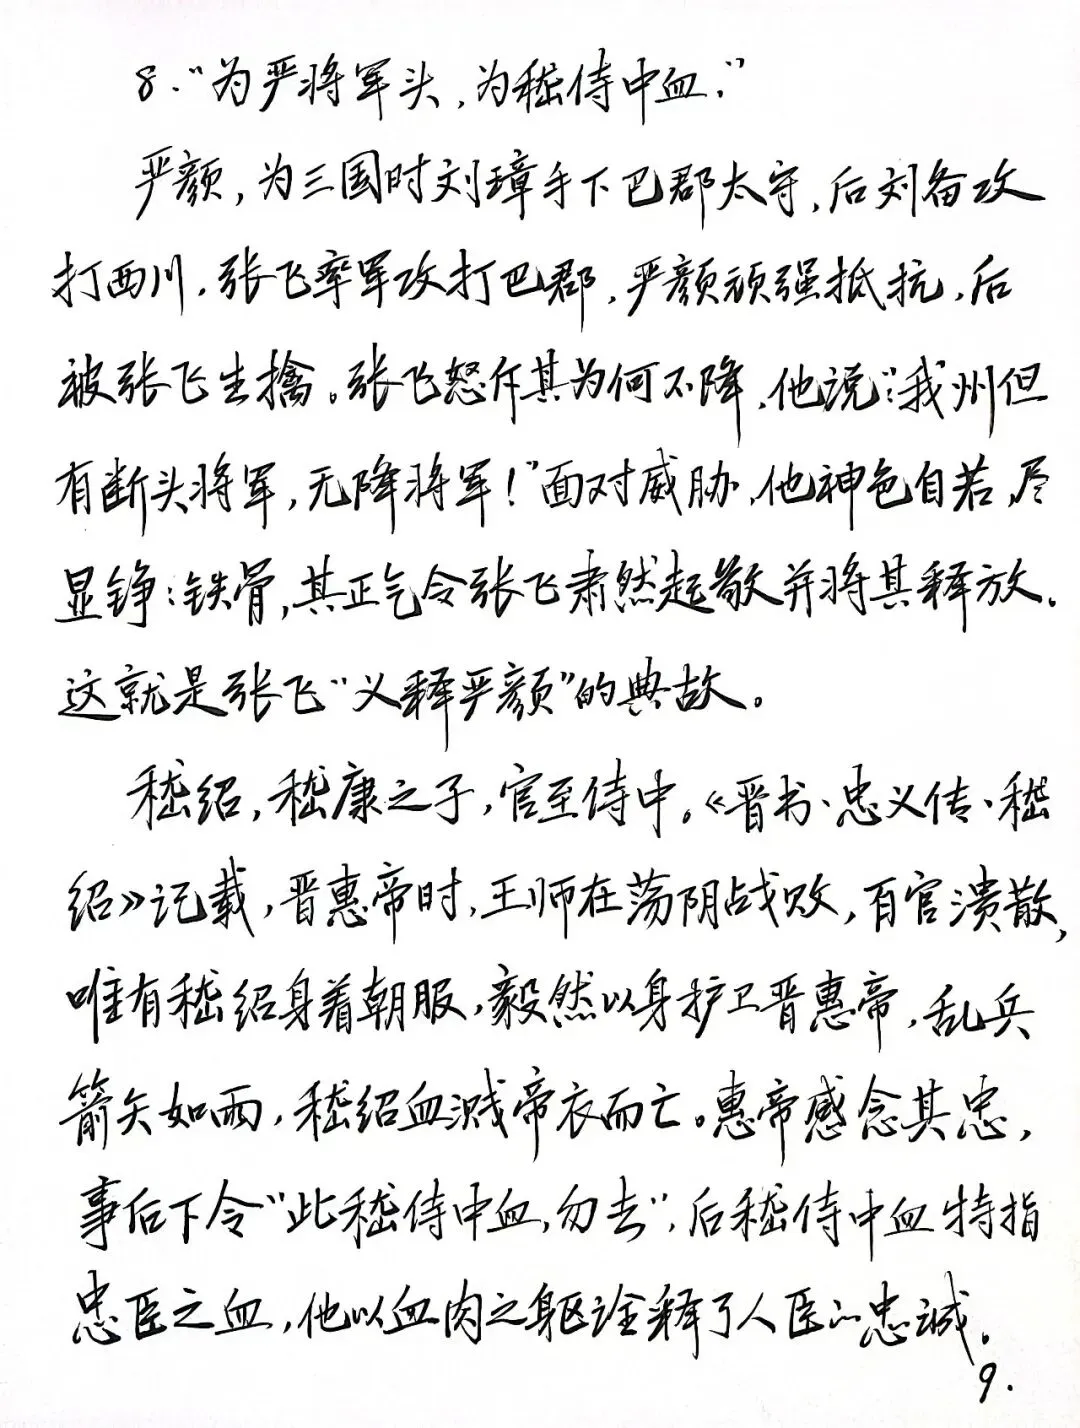 8."为严将军头,为嵇侍中血,"
严颜,为三国时刘璋手下巴郡太守,后刘备攻
打西川,张飞率军攻打巴郡,严颜顽强抵抗,后
被张飞生擒。张飞怒斥其为何不降,他说:"我州但
有断头将军,无降将军!"面对威胁,他神色自若,尽
显铮:铁骨,其正气令张飞肃然起敬并将其释放.
这就是张飞"义释严颜"的典故。
嵇绍,嵇康之子,官至侍中。《晋书·忠义传·嵇
绍》记载,晋惠帝时,王师在荡阴战败,百官溃散,
唯有嵇绍身着朝服,毅然以身护卫晋惠帝,乱兵
箭矢如雨,嵇绍血溅帝衣而亡。惠帝感念其忠,
事后下令"此嵇侍中血,勿去",后嵇侍中血特指
忠臣之血,他以血肉之躯诠释了人臣的忠诚。
9.